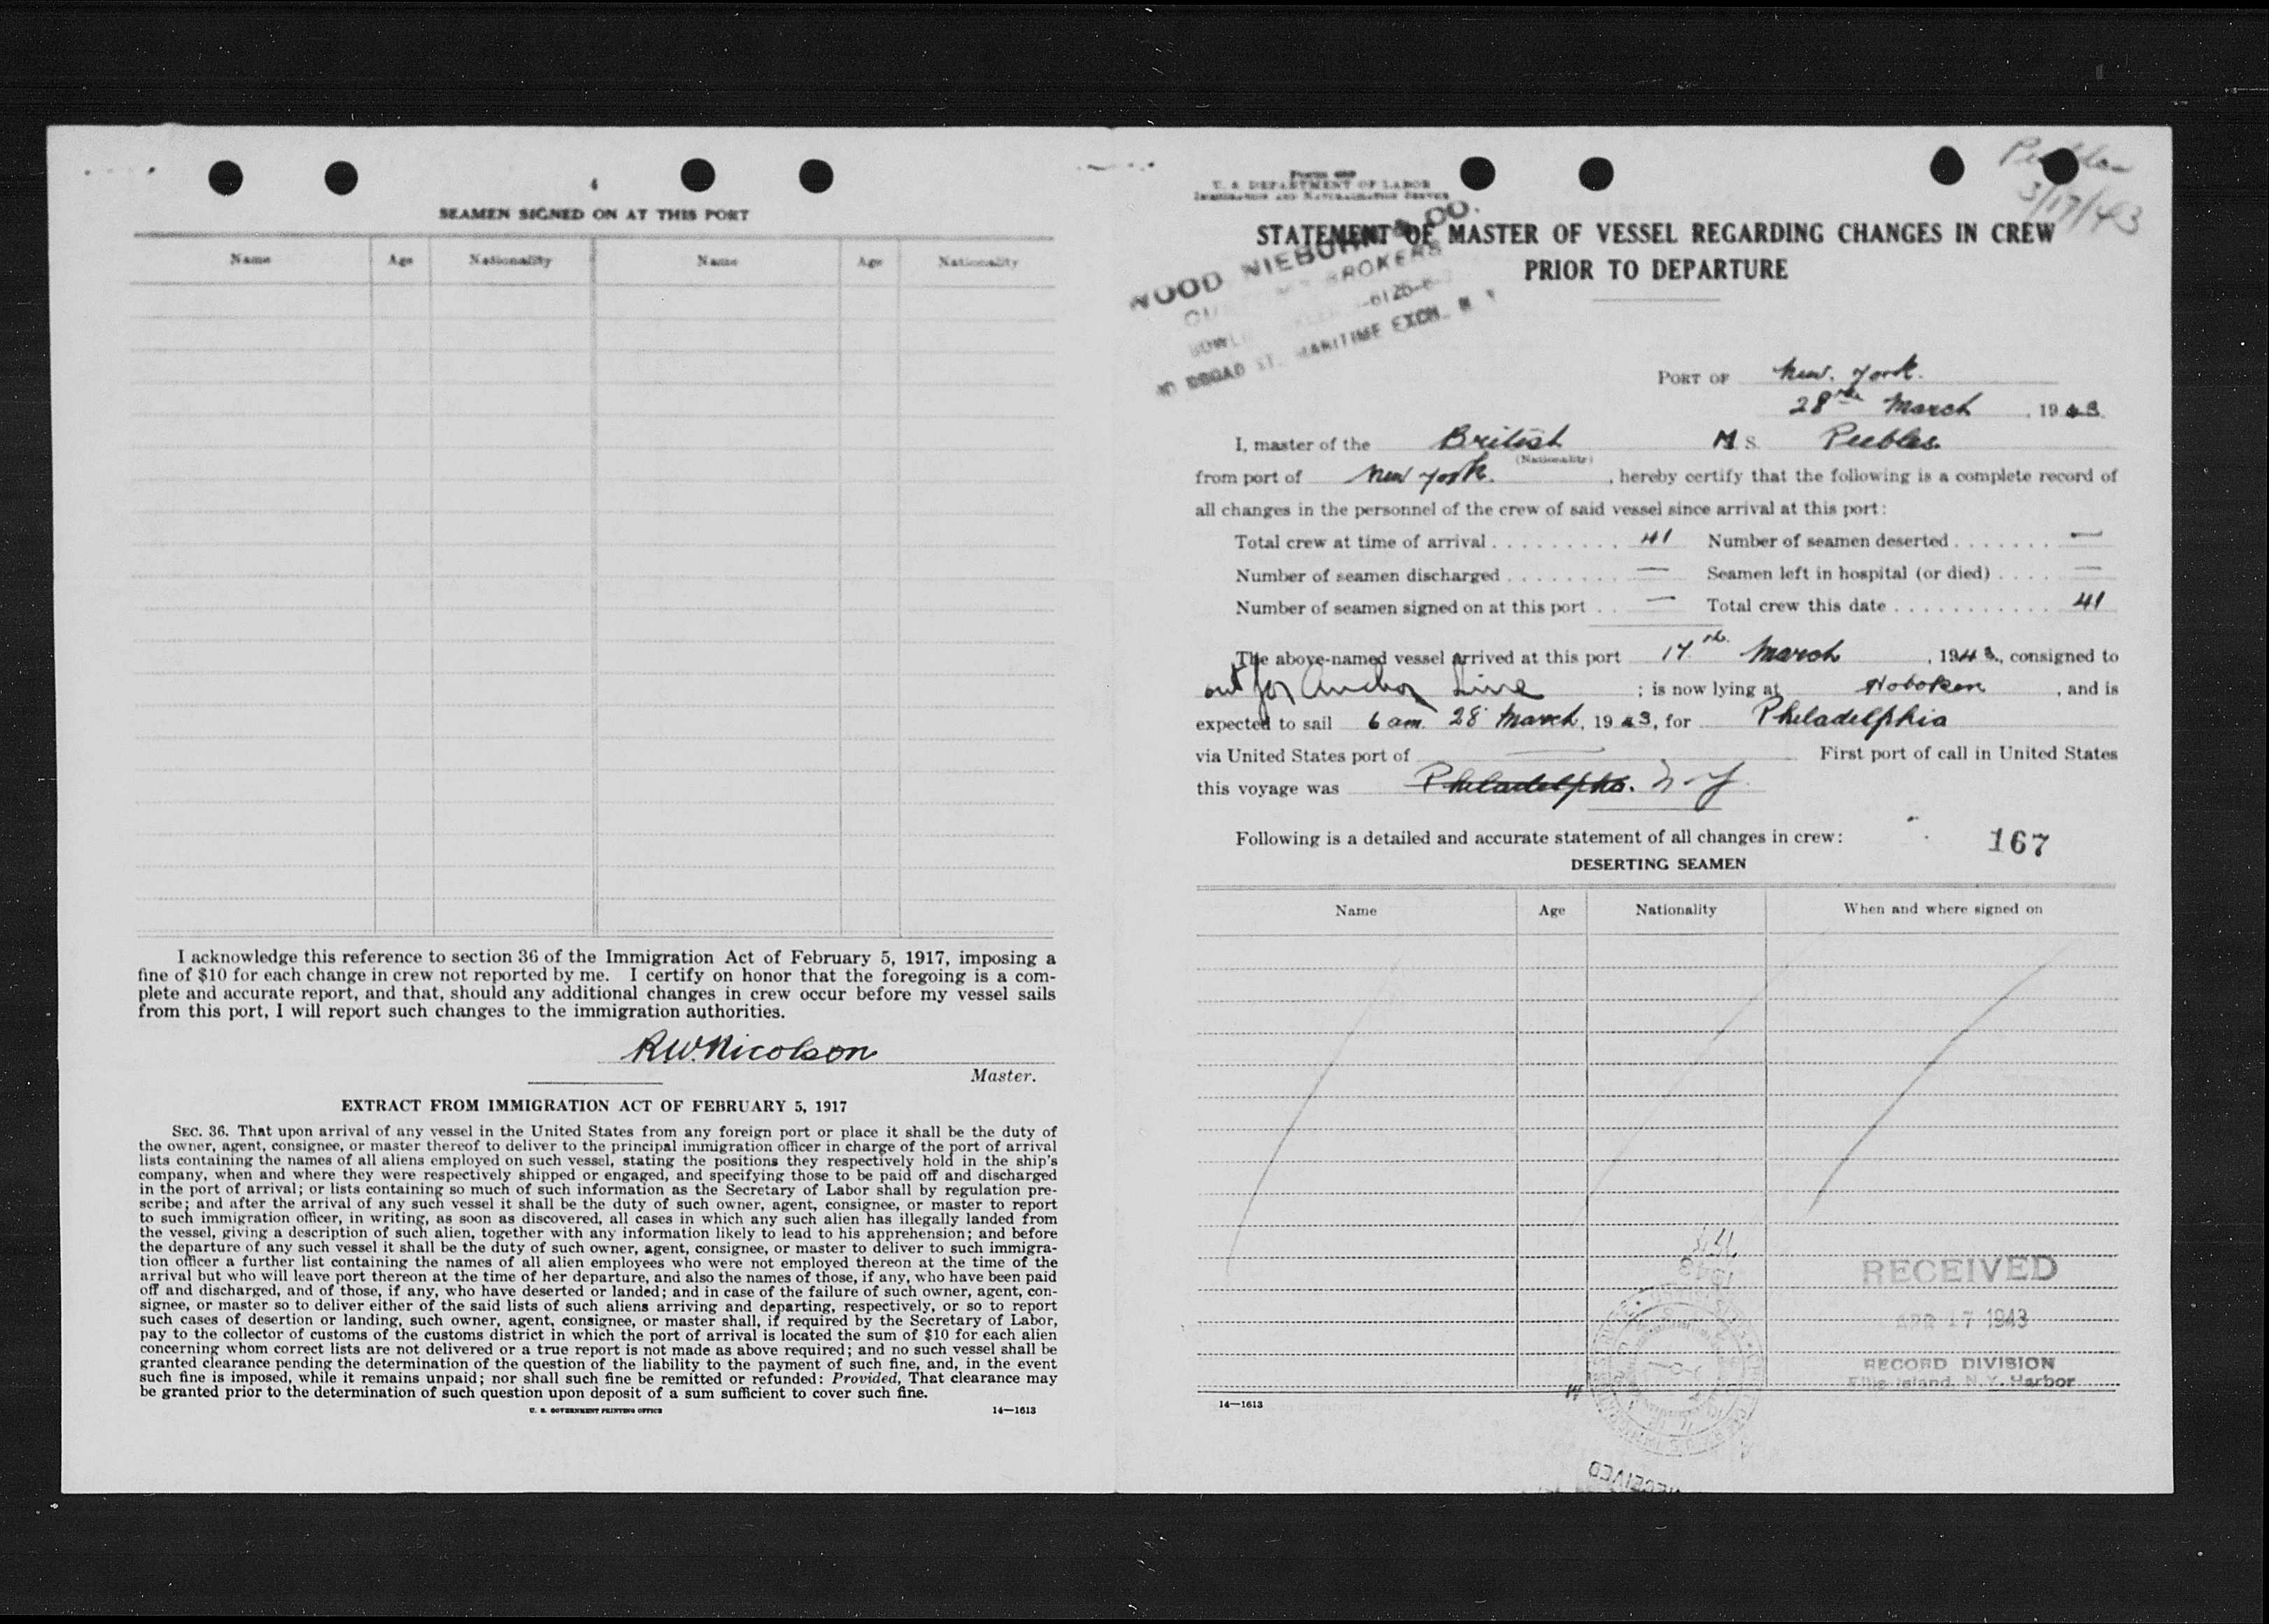 4
SEAMEN SIGNED ON AT THIS PORT
Name Age Nationality Name Age Nationality
I acknowledge this reference to section 36 of the Immigration Act of February 5, 1917, imposing a
fine of $10 for each change in crew not reported by me. I certify on honor that the foregoing is a com-
plete and accurate report, and that, should any additional changes in crew occur before my vessel sails
from this port, I will report such changes to the immigration authorities.
R.W. Nicolson
Master.
EXTRACT FROM IMMIGRATION ACT OF FEBRUARY 5, 1917
SEC. 36. That upon arrival of any vessel in the United States from any foreign port or place it shall be the duty of
the owner, agent, consignee, or master thereof to deliver to the principal immigration officer in charge of the port of arrival
lists containing the names of all aliens employed on such vessel, stating the positions they respectively hold in the ship's
company, when and where they were respectively shipped or engaged, and specifying those to be paid off and discharged
in the port of arrival; or lists containing so much of such information as the Secretary of Labor shall by regulation pre-
scribe; and after the arrival of any such vessel it shall be the duty of such owner, agent, consignee, or master to report
to such immigration officer, in writing, as soon as discovered, all cases in which any such alien has illegally landed from
the vessel, giving a description of such alien, together with any information likely to lead to his apprehension; and before
the departure of any such vessel it shall be the duty of such owner, agent, consignee, or master to deliver to such immigra-
tion officer a further list containing the names of all alien employees who were not employed thereon at the time of the
arrival but who will leave port thereon at the time of her departure, and also the names of those, if any, who have been paid
off and discharged, and of those, if any, who have deserted or landed; and in case of the failure of such owner, agent, con-
signee, or master so to deliver either of the said lists of such aliens arriving and departing, respectively, or so to report
such cases of desertion or landing, such owner, agent, consignee, or master shall, if required by the Secretary of Labor,
pay to the collector of customs of the customs district in which the port of arrival is located the sum of $10 for each alien
concerning whom correct lists are not delivered or a true report is not made as above required; and no such vessel shall be
granted clearance pending the determination of the question of the liability to the payment of such fine, and, in the event
such fine is imposed, while it remains unpaid; nor shall such fine be remitted or refunded: Provided, That clearance may
be granted prior to the determination of such question upon deposit of a sum sufficient to cover such fine.
U. S. GOVERNMENT PRINTING OFFICE 14—1613
Peebles
3/17/43
Form 689
U. S. DEPARTMENT OF LABOR
IMMIGRATION AND NATURALIZATION SERVICE
STATEMENT OF MASTER OF VESSEL REGARDING CHANGES IN CREW
PRIOR TO DEPARTURE
WOOD NIEBUHR & CO.
BROKERS
BROAD ST. MARITIME EXCH. N Y
PORT OF New York.
28th March, 1943
I, master of the British M. S. Peebles.
(Nationality)
from port of New York., hereby certify that the following is a complete record of
all changes in the personnel of the crew of said vessel since arrival at this port:
Total crew at time of arrival 41 Number of seamen deserted —
Number of seamen discharged — Seamen left in hospital (or died) —
Number of seamen signed on at this port — Total crew this date 41
The above-named vessel arrived at this port 17th March, 1943, consigned to
for Anchor Line; is now lying at Hoboken, and is
expected to sail 6 am. 28 March, 1943, for Philadelphia
via United States port of — First port of call in United States
this voyage was Philadelphia. N-Y
Following is a detailed and accurate statement of all changes in crew:
167
DESERTING SEAMEN
Name Age Nationality When and where signed on
1943
RECEIVED
APR 17 1943
RECORD DIVISION
Ellis Island, N.Y. Harbor
14—1613
RECEIVED